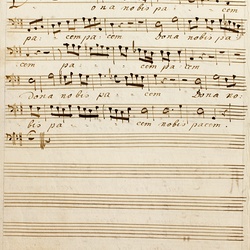 ona nobis pa - cem
pa - cem pa - cem Dona nobis pa -
cem pa - cem pa - cem
Dona nobis pa - cem Dona no -
bis pa - cem nobis pacem.